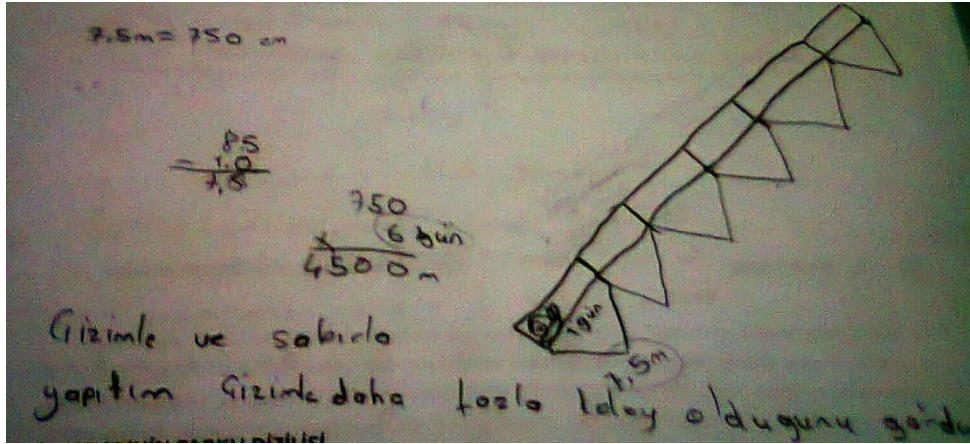 7.5m = 750 cm
8.5
- 1.0
7,5
750
x 6 gün
4500 m
1 gün
7,5m
Çizimle ve sabırla
yaptım Çizimle daha fazla kolay olduğunu gördü